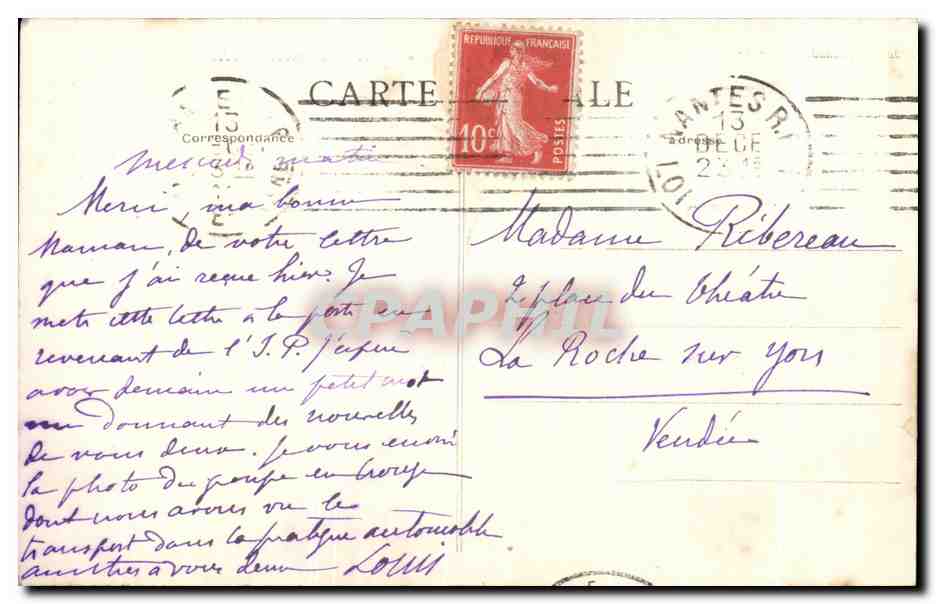 CARTE ALE
REPUBLIQUE FRANÇAISE
10c
POSTES
NANTES R.
13
DECE
23
LOI
Correspondance
adresse
mercredi matin
Merci, ma bonne
Maman, de votre lettre
que j'ai reçue hier. Je
mets cette lettre à la poste en
revenant de l'I.P. J'espère
avoir demain un petit mot
me donnant des nouvelles
de vous deux. Je vous envoie
la photo du groupe en
dont nous avons vu le
transport dans la pratique automobile
à vous deux Louis
Madame Ribereau
2 place du théâtre
La Roche sur Yon
Vendée
CPAPHIL